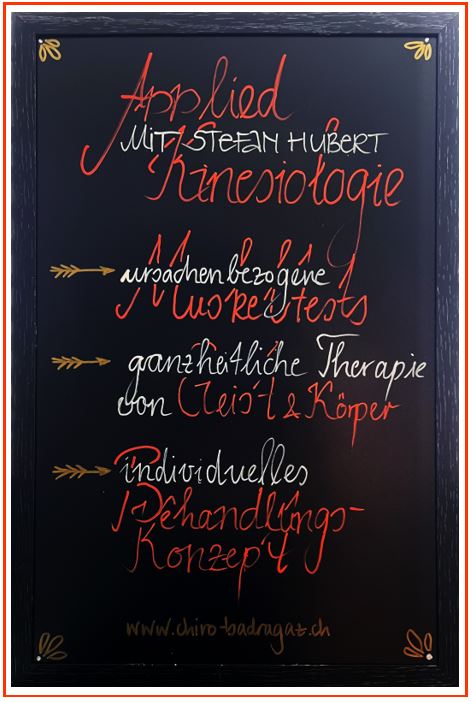 Applied
MIT STEFAN HUBERT
Kinesiologie
ursachenbezogene
Muskeltests
ganzheitliche Therapie
von Geist & Körper
individuelles
Behandlungs-
Konzept
www.chiro-badragaz.ch